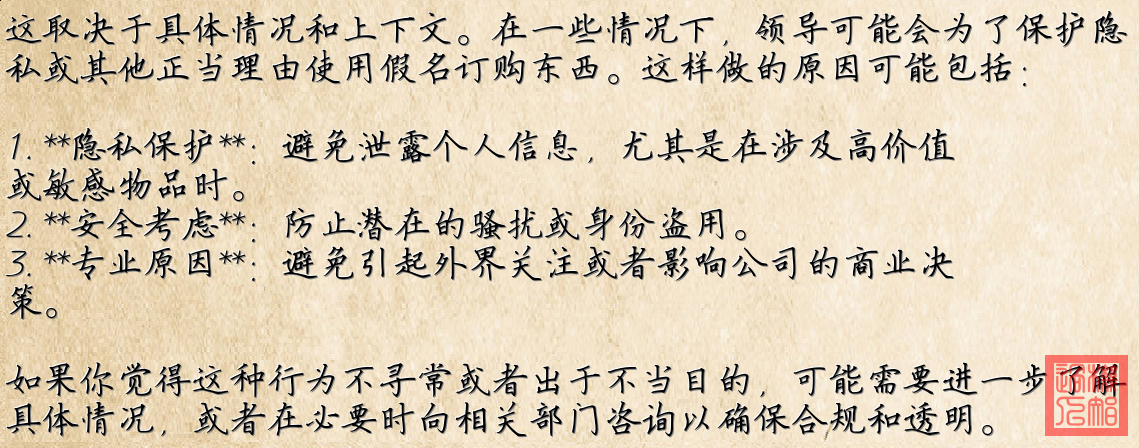 这取决于具体情况和上下文。在一些情况下，领导可能会为了保护隐
私或其他正当理由使用假名订购东西。这样做的原因可能包括：
1. **隐私保护**：避免泄露个人信息，尤其是在涉及高价值
或敏感物品时。
2. **安全考虑**：防止潜在的骚扰或身份盗用。
3. **专业原因**：避免引起外界关注或者影响公司的商业决
策。
如果你觉得这种行为不寻常或者出于不当目的，可能需要进一步了解
具体情况，或者在必要时向相关部门咨询以确保合规和透明。